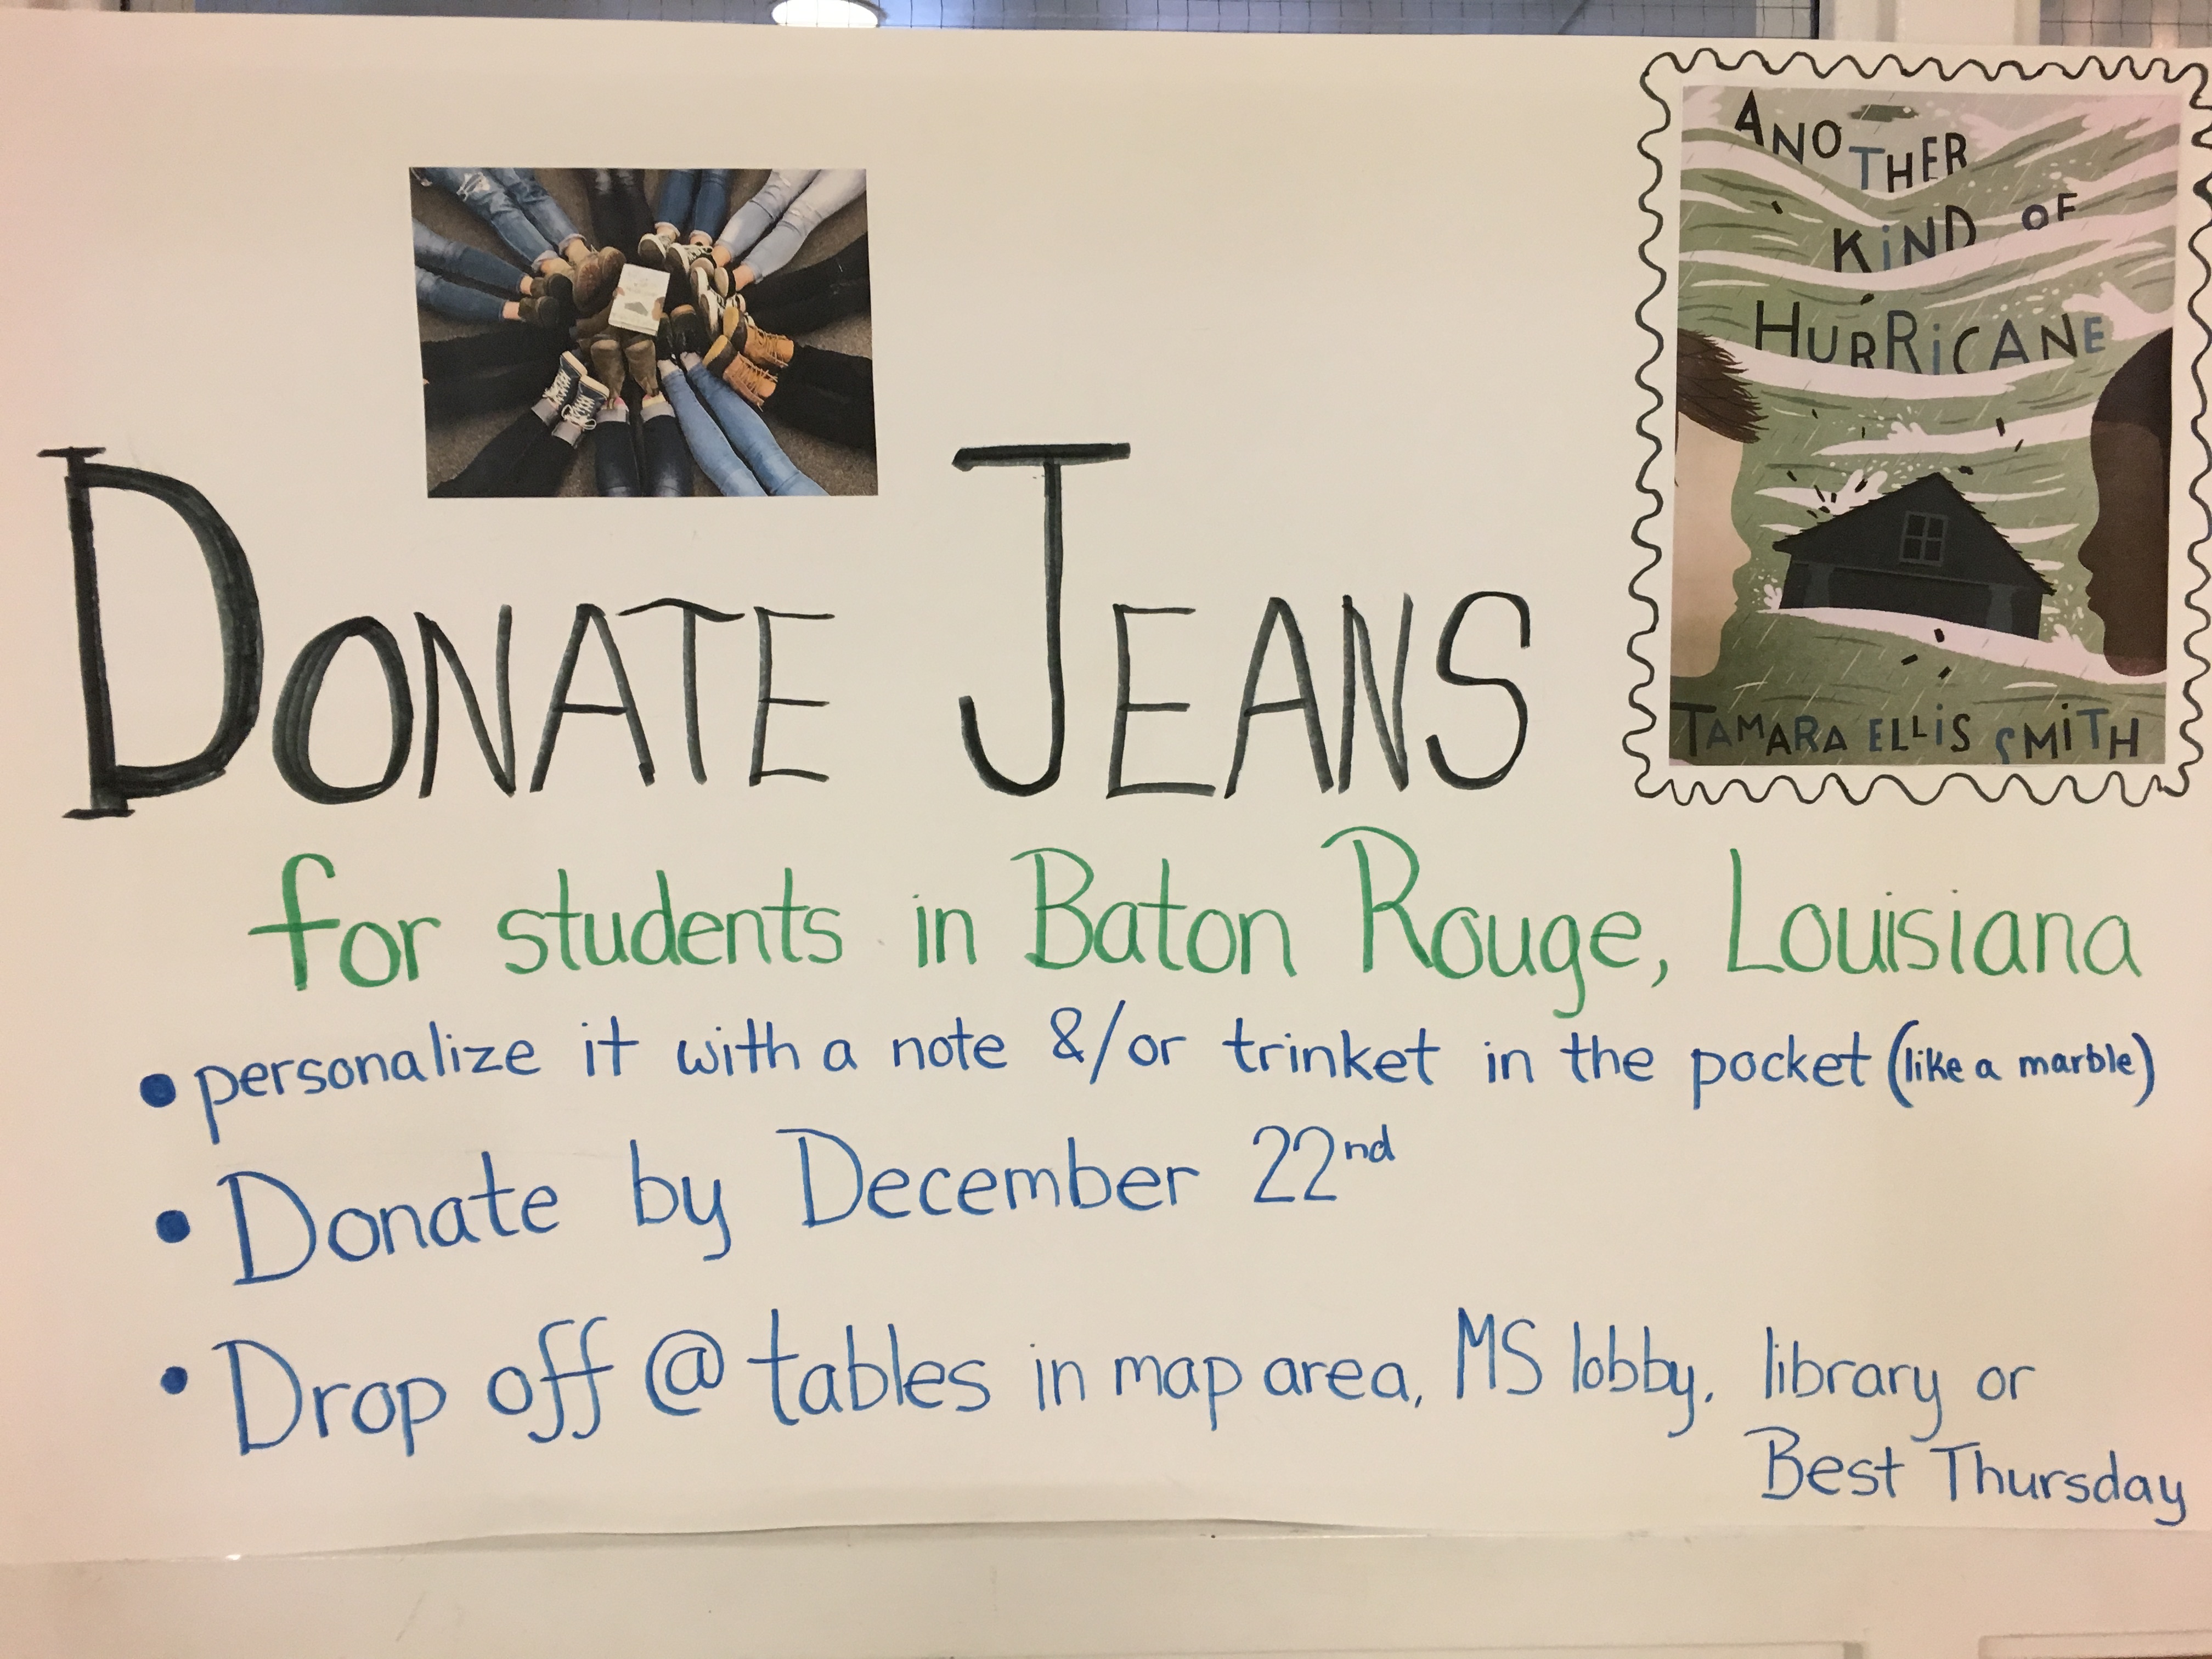 ANOTHER
KiND OF
HURRiCANE
TAMARA ELLiS SMiTH
DONATE JEANS
for students in Baton Rouge, Louisiana
• personalize it with a note &/or trinket in the pocket (like a marble)
• Donate by December 22nd
• Drop off @ tables in map area, MS lobby, library or
Best Thursday